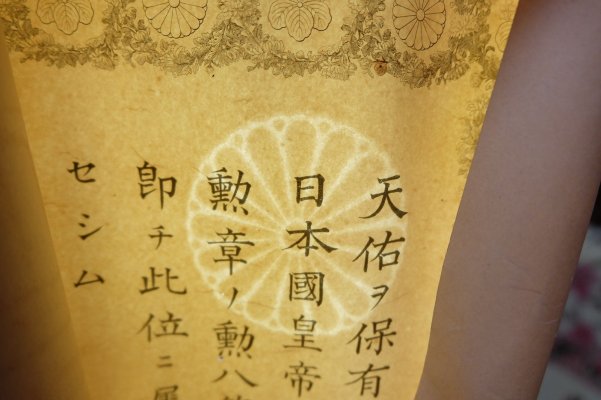 天佑ヲ保有
日本國皇帝
勲章ノ勲八
卽チ此位ニ
セシム